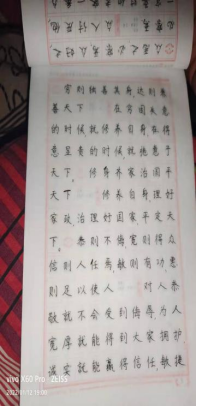 穷则独善其身达则兼
善天下 在穷困失意
的时候就修养自身在得
意显贵的时候就施惠于
天下。 修身齐家治国平
天下 修养自身理好
家政，治理好国家平定天
下。 恭则不侮宽则得众
信则人任焉敏则有功，惠
则足以使人 对人恭
敬就不会受到侮辱，为人
宽厚就能得到大家拥护
诚实就能赢得信任敏捷
vivo X60 Pro · ZEISS